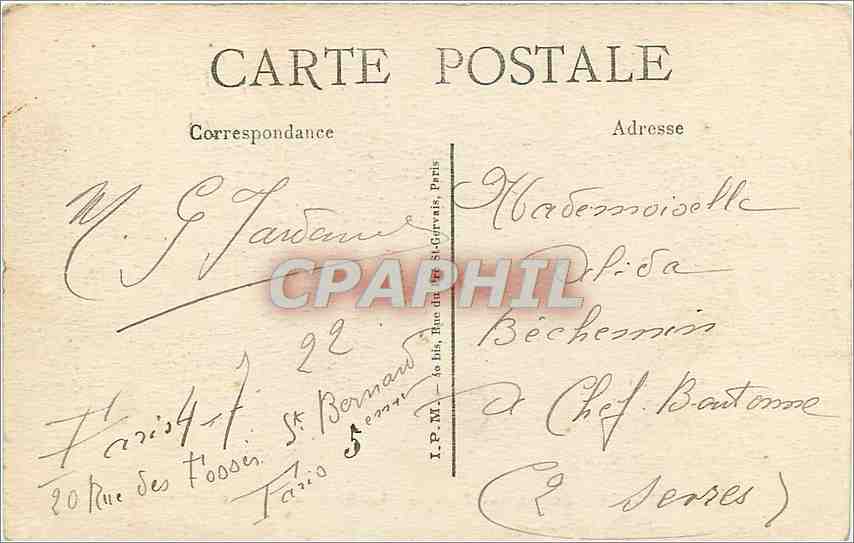 CARTE POSTALE
Correspondance
Adresse
M. G. Jardanel
Paris 4-7. 22
20 Rue des Fossés St Bernard
Paris 5eme
I.P.M. — 40 bis, Rue du Pré St-Gervais, Paris
Mademoiselle
Alida
Béchemin
à Chef. Boutonne
(2 Sevres)
CPAPHIL